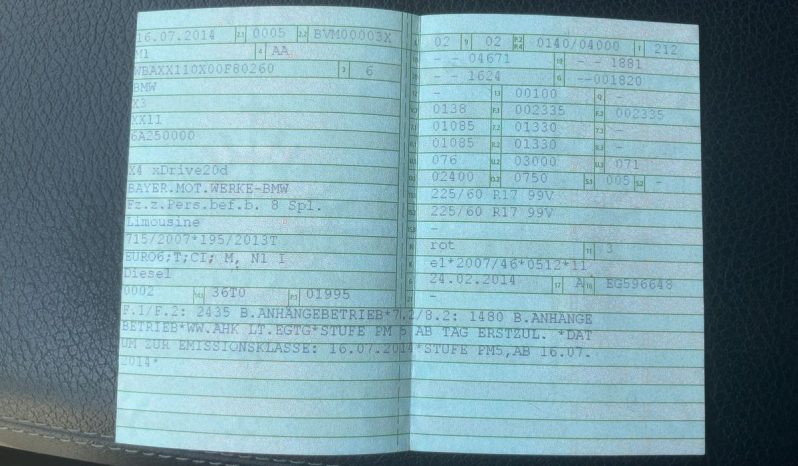 16.07.2014 2.1 0005 2.2 BVM00003X
M1 4 AA
WBAXX110X00F80260 3 6
BMW
X3
XX11
6A250000
X4 xDrive20d
BAYER.MOT.WERKE-BMW
Fz.z.Pers.bef.b. 8 Spl.
Limousine
715/2007*195/2013T
EURO6;T;CI; M, N1 I
Diesel
0002 14.1 36T0 P.1 01995
02 9 02 P.2 P.4 0140/04000 T 212
- - 04671 - - 1881
- - 1624 - --001820
- 13 00100 Q -
0138 F.1 002335 F.2 002335
01085 7.2 01330 7.3 -
01085 8.2 01330 8.3 -
076 U.2 03000 U.3 071
02400 O.2 0750 S.1 005 S.2 -
225/60 R17 99V
225/60 R17 99V
-
rot 11 3
e1*2007/46*0512*11
24.02.2014 17 A 16 EG596648
-
F.1/F.2: 2435 B.ANHÄNGEBETRIEB*7.2/8.2: 1480 B.ANHÄNGE
BETRIEB*WW.AHK LT.EGTG*STUFE PM 5 AB TAG ERSTZUL. *DAT
UM ZUR EMISSIONSKLASSE: 16.07.2014*STUFE PM5,AB 16.07.
2014*